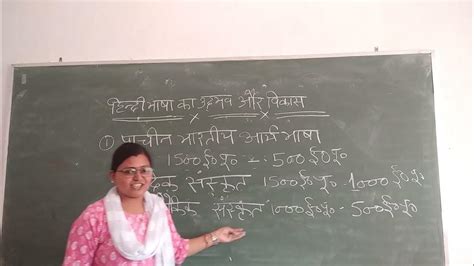 हिन्दी भाषा का उद्भव और विकास
① प्राचीन भारतीय आर्य भाषा
1500 ई०पू० - 500 ई०पू०
संस्कृत 1500 ई०पू० - 1000 ई०पू०
संस्कृत 1000 ई०पू० - 500 ई०पू०